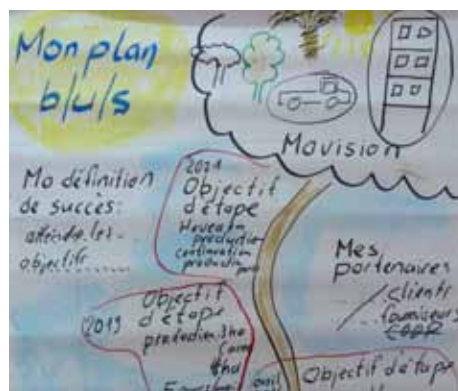 Mon plan
b/u/s
Ma vision
Ma définition
de succès:
atteindre les
objectifs
2021
Objectif
d'étape
production
continuation
production
Mes
partenaires
clients
fournisseurs
2019
Objectif
d'étape
Objectif d'étape